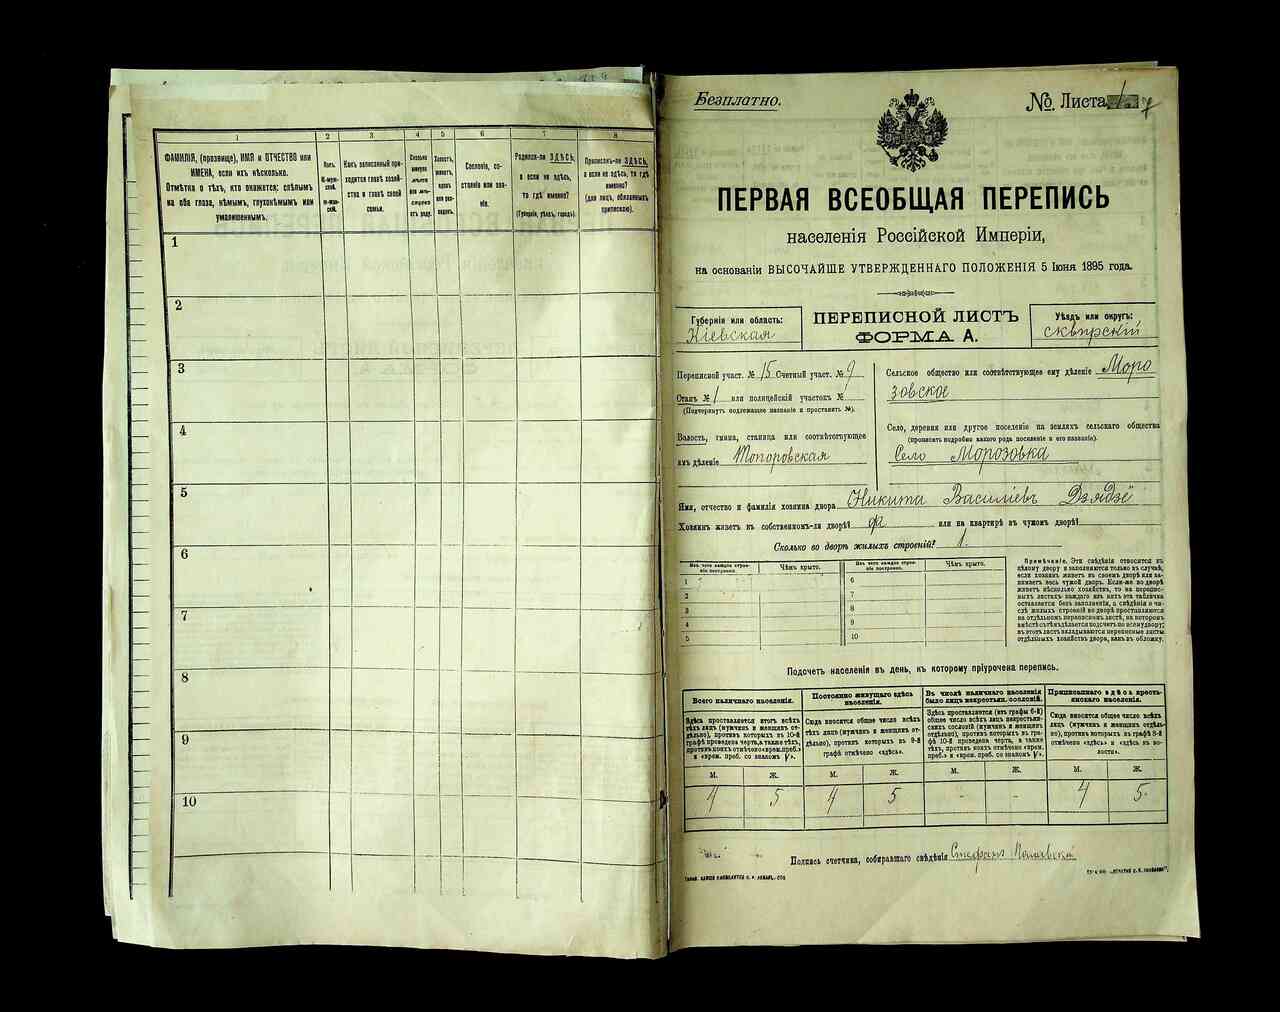 1
2
3
4
5
6
7
8
ФАМИЛІЯ, (прозвище), ИМЯ и ОТЧЕСТВО или
ИМЕНА, если ихъ нѣсколько.
Отмѣтка о тѣхъ, кто окажется: слѣпымъ
на оба глаза, нѣмымъ, глухонѣмымъ или
умалишеннымъ.
Полъ.
М-муж-
ской.
Ж-жен-
скій.
Какъ записанный при-
ходится главѣ хозяй-
ства и главѣ своей
семьи.
Сколько
минуло
лѣтъ
или мѣ-
сяцевъ
отъ роду.
Холостъ,
женатъ,
вдовъ
или раз-
веденъ.
Сословіе, со-
стояніе или зва-
ніе.
Родился-ли ЗДѢСЬ,
а если не здѣсь,
то гдѣ именно?
(Губернія, уѣздъ, городъ).
Приписанъ-ли ЗДѢСЬ,
а если не здѣсь, то гдѣ
именно?
(для лицъ, обязанныхъ
припискою).
1
2
3
4
5
6
7
8
9
10
Безплатно.
№ Листа 1
ПЕРВАЯ ВСЕОБЩАЯ ПЕРЕПИСЬ
населенія Россійской Имперіи,
на основаніи ВЫСОЧАЙШЕ УТВЕРЖДЕННАГО ПОЛОЖЕНІЯ 5 Іюня 1895 года.
Губернія или область:
Кіевская
ПЕРЕПИСНОЙ ЛИСТЪ
ФОРМА А.
Уѣздъ или округъ:
сквирскій
Переписной участ. № 15 Счетный участ. № 9
Станъ № 1 или полицейскій участокъ №
(Подчеркнуть подлежащее названіе и проставить №).
Волость, гмина, станица или соотвѣтствующее
имъ дѣленіе Топоровская
Сельское общество или соотвѣтствующее ему дѣленіе Моро
зовское
Село, деревня или другое поселеніе на земляхъ сельскаго общества
(прописать подробно какого рода поселеніе и его названіе).
Село Морозовка
Имя, отчество и фамилія хозяина двора Никита Василіевъ Дзядзё
Хозяинъ живетъ въ собственномъ-ли дворѣ? или на квартирѣ въ чужомъ дворѣ?
Сколько во дворѣ жилыхъ строеній? 1.
Изъ чего каждое строе-
ніе построено.
Чѣмъ крыто.
Изъ чего каждое строе-
ніе построено.
Чѣмъ крыто.
1
2
3
4
5
6
7
8
9
10
Примѣчаніе. Эти свѣдѣнія относятся къ
цѣлому двору и заполняются только въ случаѣ,
если хозяинъ живетъ въ своемъ дворѣ или за-
нимаетъ весь чужой дворъ. Если-же во дворѣ
живетъ нѣсколько хозяйствъ, то на перепис-
ныхъ листахъ каждаго изъ нихъ эта табличка
оставляется безъ заполненія, а свѣдѣнія о чи-
слѣ жилыхъ строеній во дворѣ проставляются
на отдѣльномъ переписномъ листѣ, на которомъ
вмѣстѣ съ тѣмъ дѣлается подсчетъ по всему двору;
въ этотъ листъ вкладываются переписные листы
отдѣльныхъ хозяйствъ двора, какъ въ обложку.
Подсчетъ населенія въ день, къ которому пріурочена перепись.
Всего наличнаго населенія.
Постоянно живущаго здѣсь
населенія.
Въ числѣ наличнаго населенія
было лицъ некрестьян. сословій.
Приписаннаго здѣсь кресть-
янскаго населенія.
Здѣсь проставляется итогъ всѣхъ
тѣхъ лицъ (мужчинъ и женщинъ от-
дѣльно), противъ которыхъ въ 10-й
графѣ проведена черта, а также тѣхъ,
противъ коихъ отмѣчено «врем. преб.»
и «врем. преб. со знакомъ V».
Сюда вносится общее число всѣхъ
тѣхъ лицъ (мужчинъ и женщинъ от-
дѣльно), противъ которыхъ въ 9-й
графѣ отмѣчено «здѣсь».
Здѣсь проставляется (изъ графы 6-й)
общее число всѣхъ лицъ некрестьян-
скихъ сословій (мужчинъ и женщинъ
отдѣльно), противъ которыхъ въ гра-
фѣ 10-й проведена черта, а также
тѣхъ, противъ коихъ отмѣчено «врем.
преб.» и «врем. преб. со знакомъ V».
Сюда вносится общее число всѣхъ
лицъ (мужчинъ и женщинъ отдѣль-
но), противъ которыхъ въ графѣ 8-й
отмѣчено «здѣсь» и «здѣсь въ во-
лости».
М.
Ж.
М.
Ж.
М.
Ж.
М.
Ж.
4
5
4
5
-
-
4
5
Подпись счетчика, собиравшаго свѣдѣнія Стефанъ